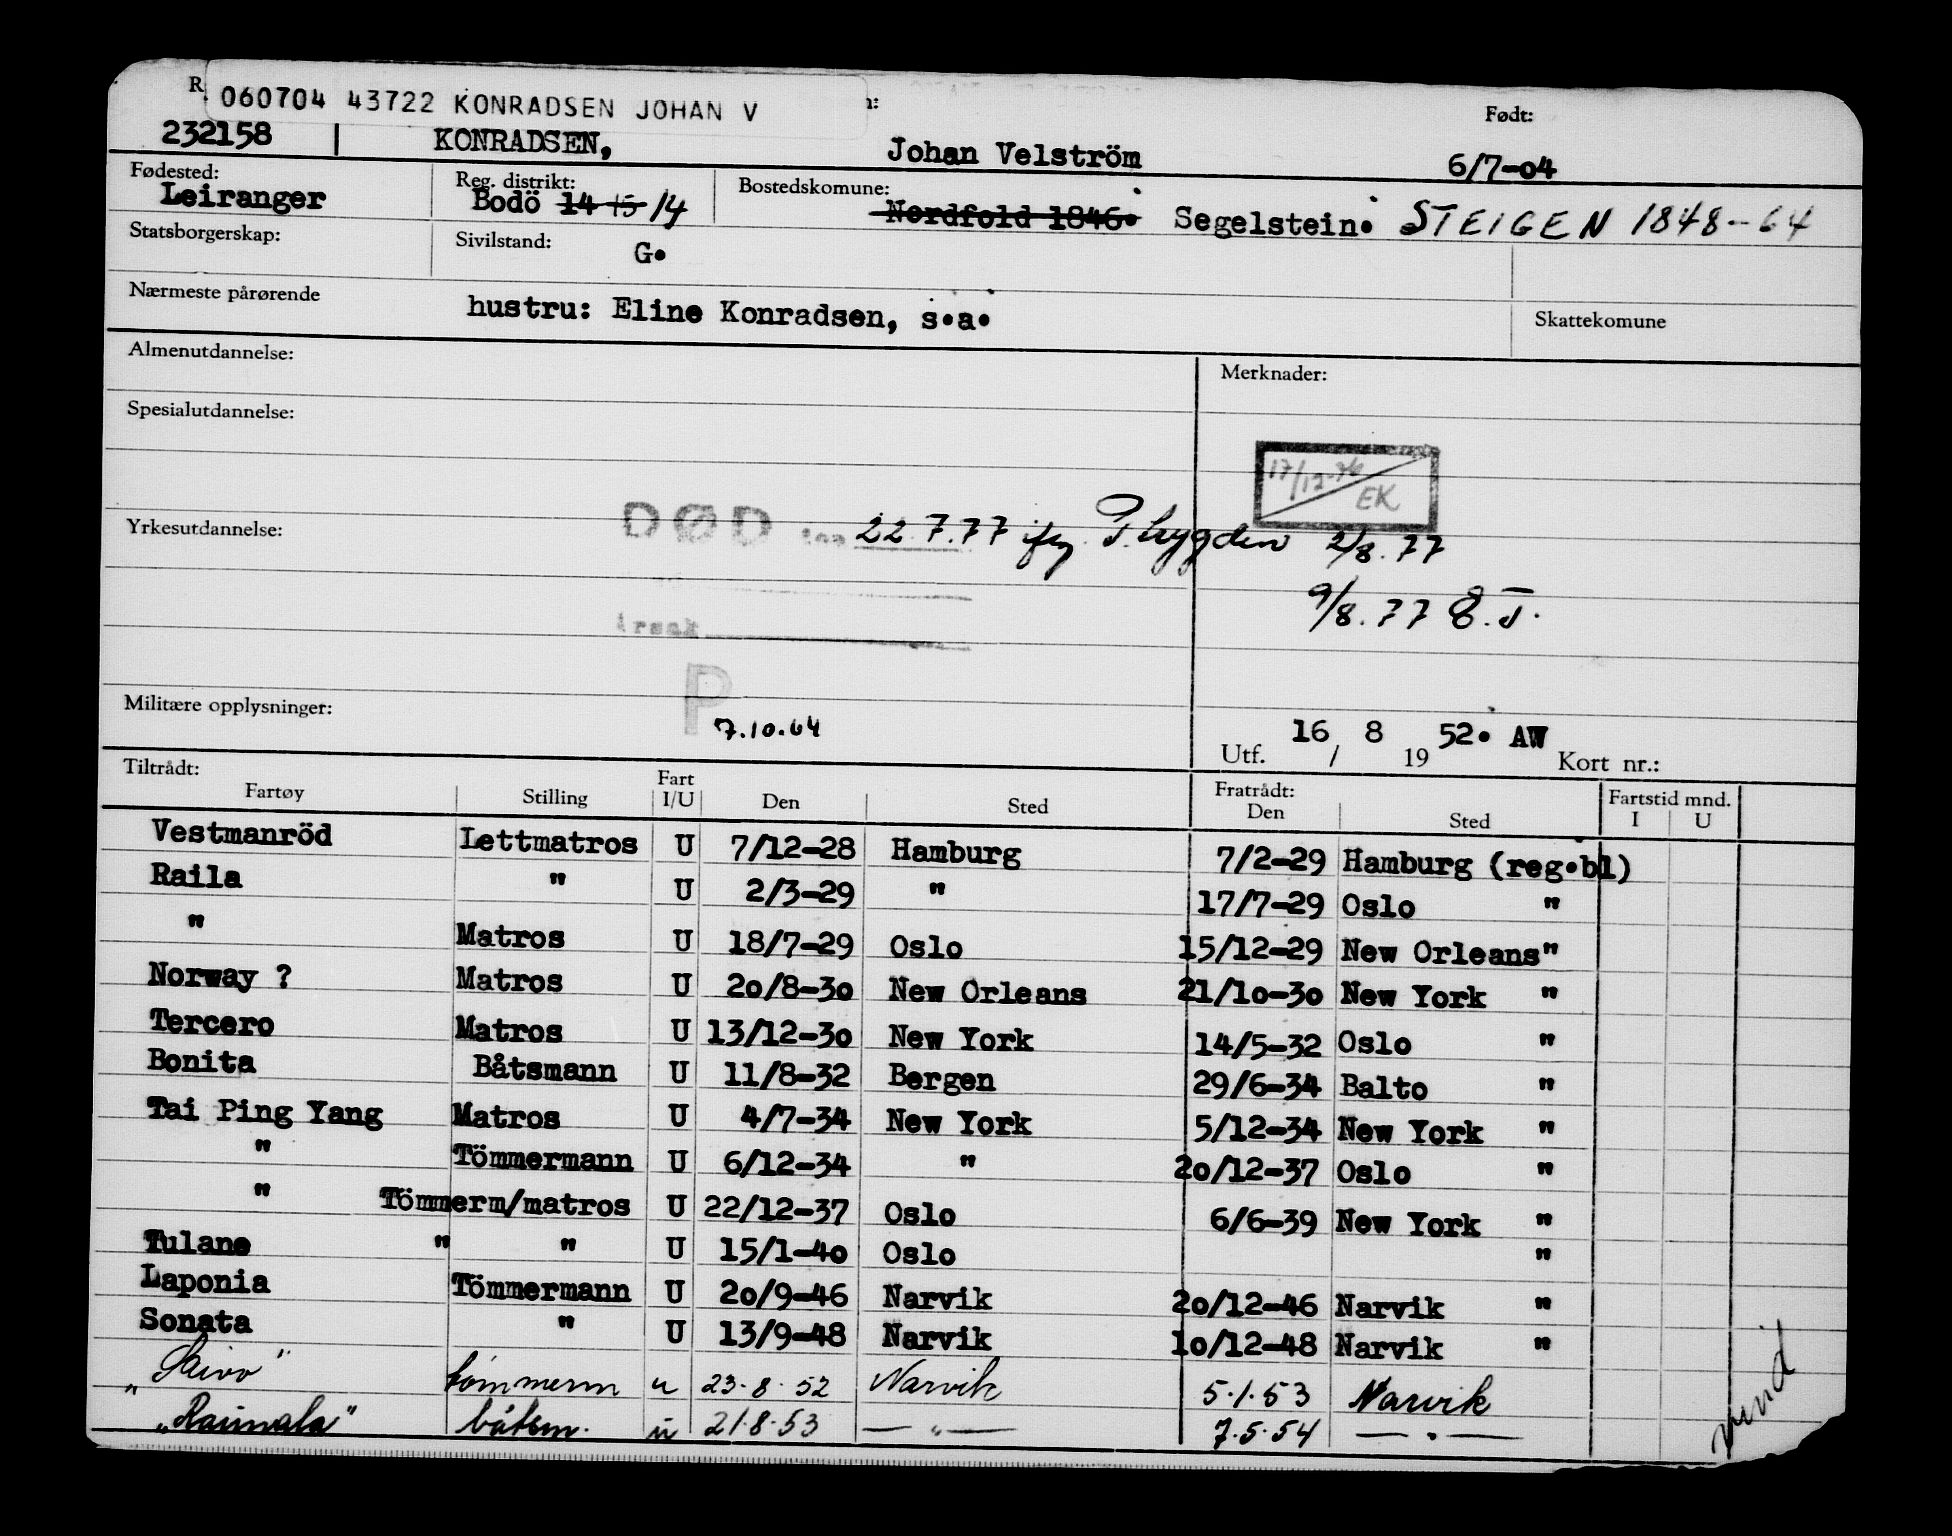 R.
060704 43722 KONRADSEN JOHAN V
Født:
232158 KONRADSEN, Johan Velström 6/7-04
Fødested: Reg. distrikt: Bostedskomune:
Leiranger Bodö 14 15 14 Nordfold 1846. Segelstein. STEIGEN 1848-64
Statsborgerskap: Sivilstand: G.
Nærmeste pårørende hustru: Eline Konradsen, s.a.
Skattekomune
Almenutdannelse: Merknader:
Spesialutdannelse:
17/12-76 EK
DØD 22.7.77 ifg. P.trygden 2/8.77
Yrkesutdannelse:
9/8.77
årsak
P
Militære opplysninger: 7.10.64
Utf. 16 / 8 19 52. AW Kort nr.:
Tiltrådt: Fart Fratrådt: Fartstid mnd.
Fartøy Stilling I/U Den Sted Den Sted I U
Vestmanröd Lettmatros U 7/12-28 Hamburg 7/2-29 Hamburg (reg.bl)
Raila " U 2/3-29 " 17/7-29 Oslo "
" Matros U 18/7-29 Oslo 15/12-29 New Orleans"
Norway ? Matros U 20/8-30 New Orleans 21/10-30 New York "
Tercero Matros U 13/12-30 New York 14/5-32 Oslo "
Bonita Båtsmann U 11/8-32 Bergen 29/6-34 Balto "
Tai Ping Yang Matros U 4/7-34 New York 5/12-34 New York "
" Tömmermann U 6/12-34 " 20/12-37 Oslo "
" Tömmerm/matros U 22/12-37 Oslo 6/6-39 New York "
Tulane " " U 15/1-40 Oslo "
Laponia Tömmermann U 20/9-46 Narvik 20/12-46 Narvik "
Sonata " U 13/9-48 Narvik 10/12-48 Narvik "
tömmerm u 23.8.52 Narvik 5.1.53 Narvik
"Raunala" båtsm. u 21.8.53 — " — 7.5.54 — " —